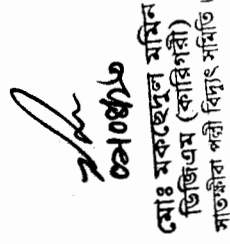 মোঃ মকছেদুল মমিন
ডিজিএম (কারিগরী)
সাতক্ষীরা পল্লী বিদ্যুৎ সমিতি